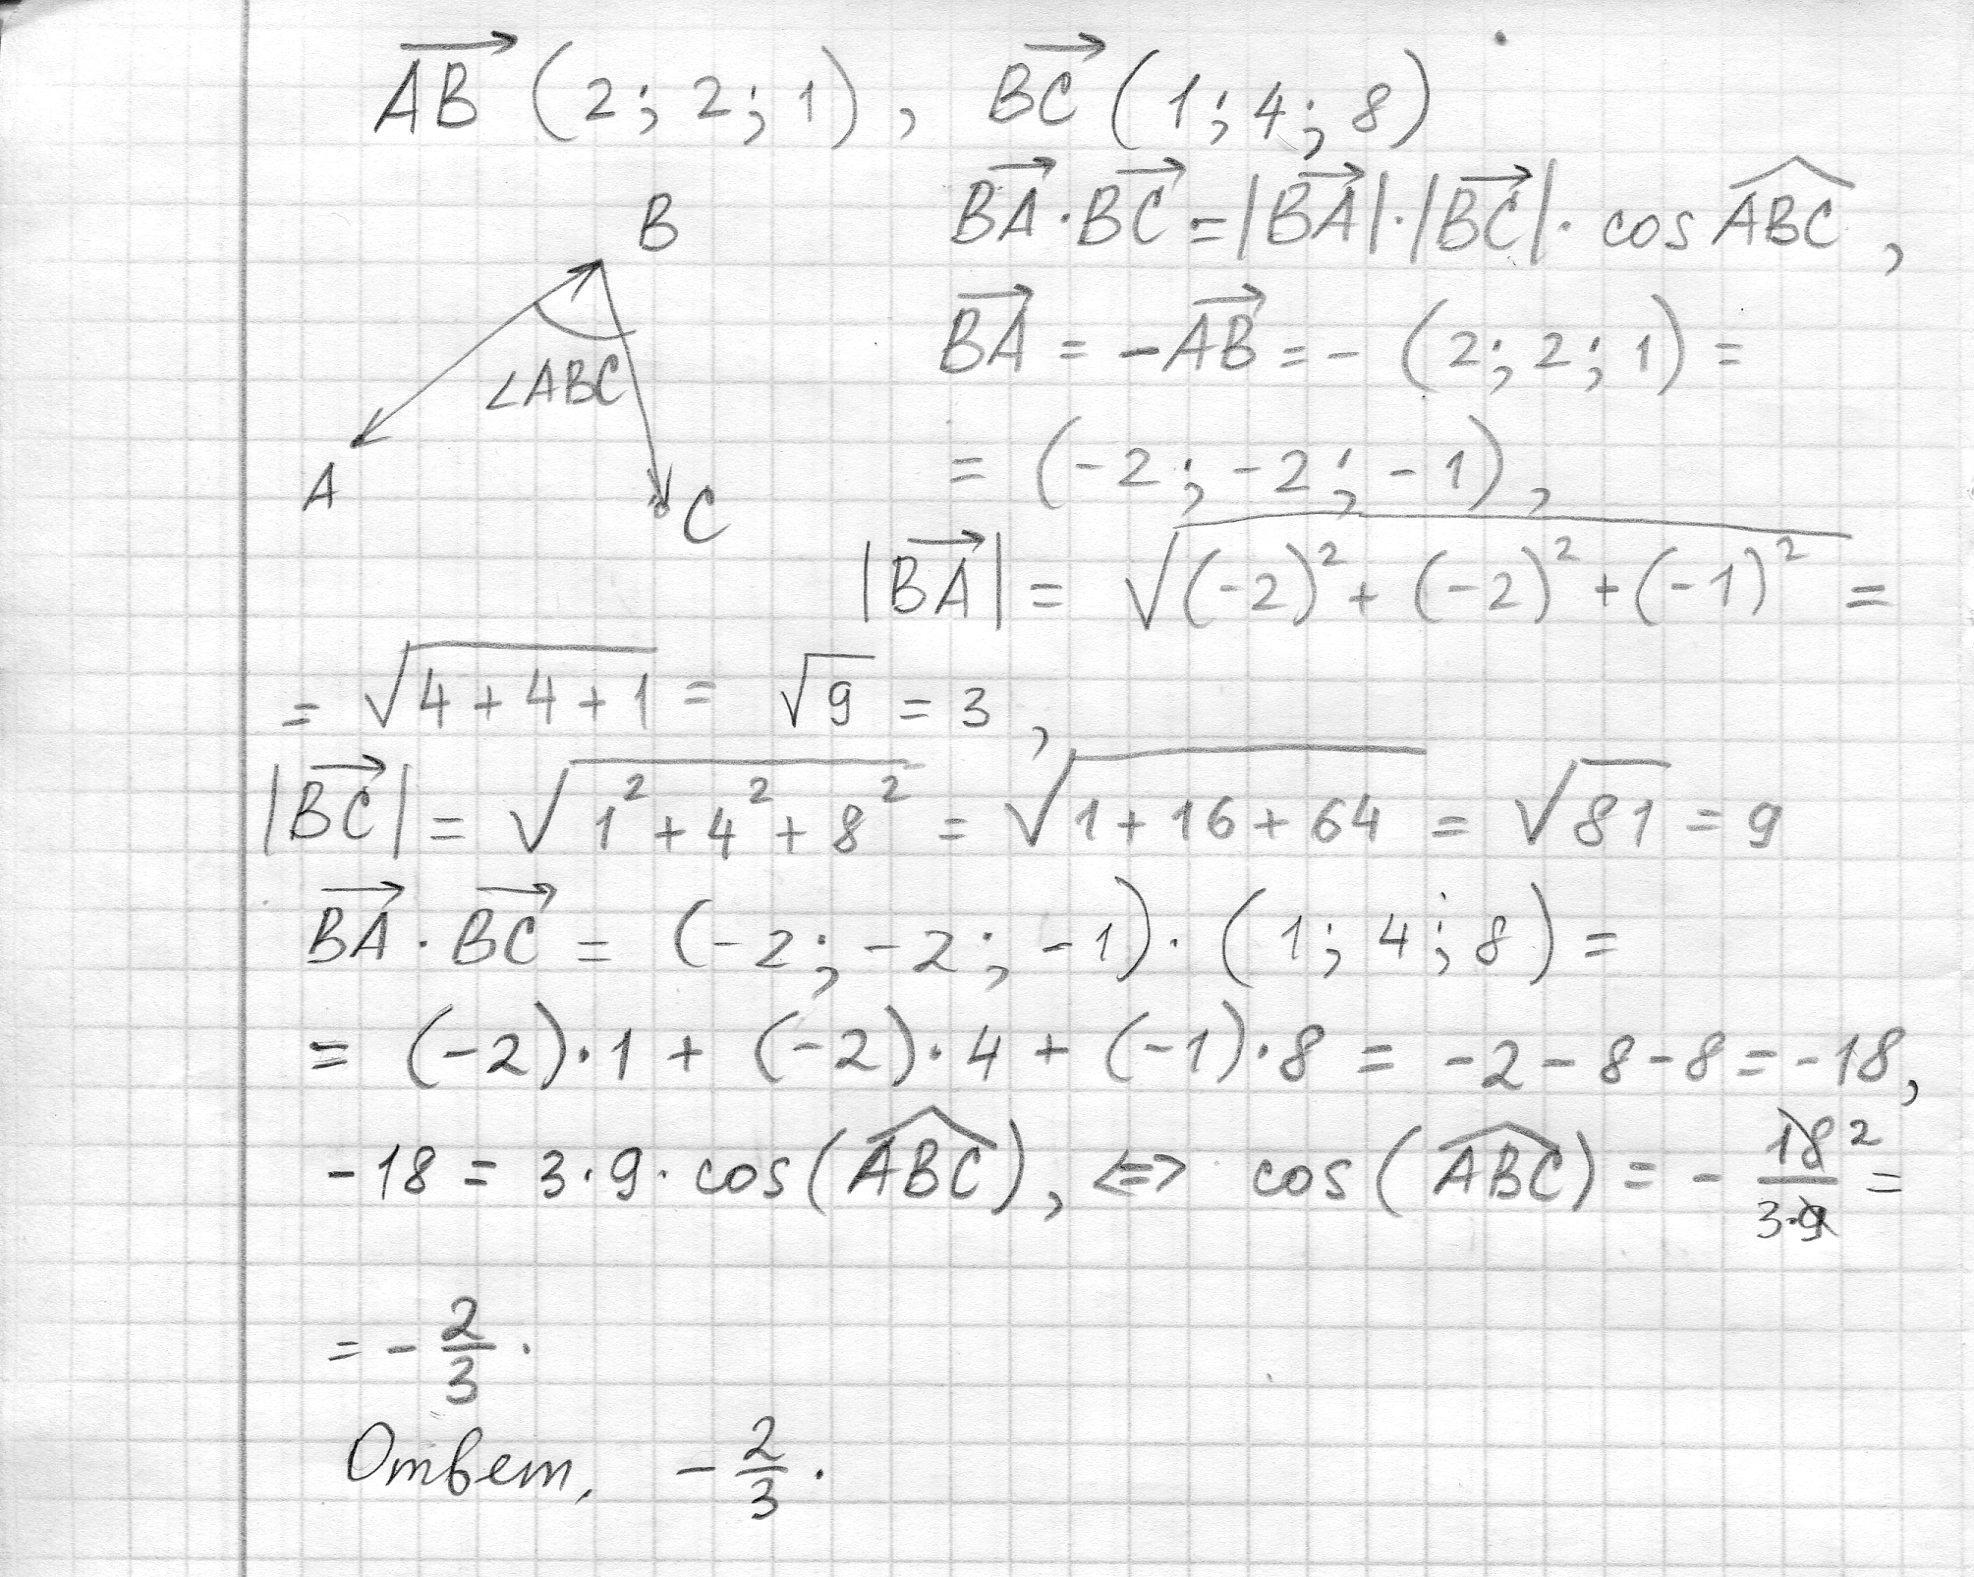 AB (2; 2; 1), BC (1; 4; 8)
B
∠ABC
A
C
BA · BC = |BA| · |BC| · cos ABC,
BA = -AB = - (2; 2; 1) =
= (-2; -2; -1),
|BA| = √((-2)² + (-2)² + (-1)²) =
= √(4+4+1) = √9 = 3,
|BC| = √(1² + 4² + 8²) = √(1+16+64) = √81 = 9
BA · BC = (-2; -2; -1) · (1; 4; 8) =
= (-2)·1 + (-2)·4 + (-1)·8 = -2-8-8 = -18,
-18 = 3·9·cos(ABC), <=> cos(ABC) = - 18²/3·9 =
= - 2/3.
Ответ. - 2/3.